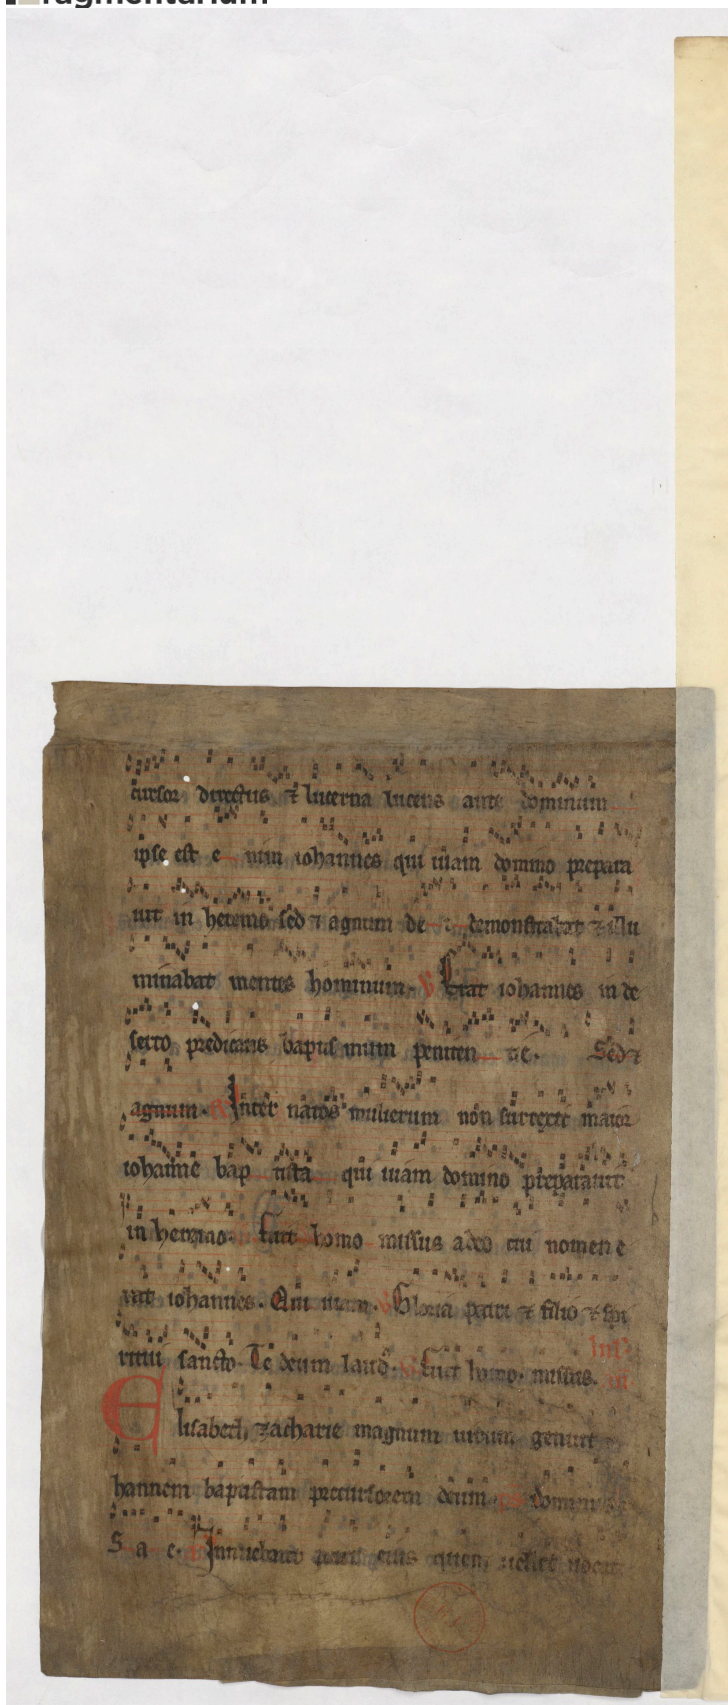 fragmentarium
cursor directus ⁊ lucerna lucens ante dominum
ipse est e nim iohannes qui uiam domino prepara
uit in heremo sed ⁊ agnum de demonstrabat ⁊ illu
minabat mentes hominum. ℣ Erat iohannes in de
serto predicans baptismum peniten tie. Sed ⁊
agnum. Inter natos mulierum non surrexit maior
iohanne bap tista qui uiam domino preparauit
in heremo. Fuit homo missus a deo cui nomen e
rat iohannes. Qui uiam. Gloria patri ⁊ filio ⁊ spi
ritui sancto. Te deum laud. Fuit homo. missus. in
Elisabeth zacharie magnum uirum genuit
hannem baptistam precursorem domini
S a e. Innuebant patri eius quem uellet uocari